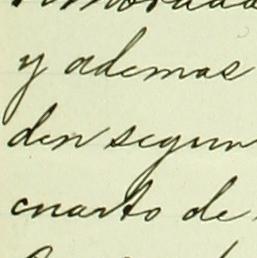 y ademas
den segun
cuarto de